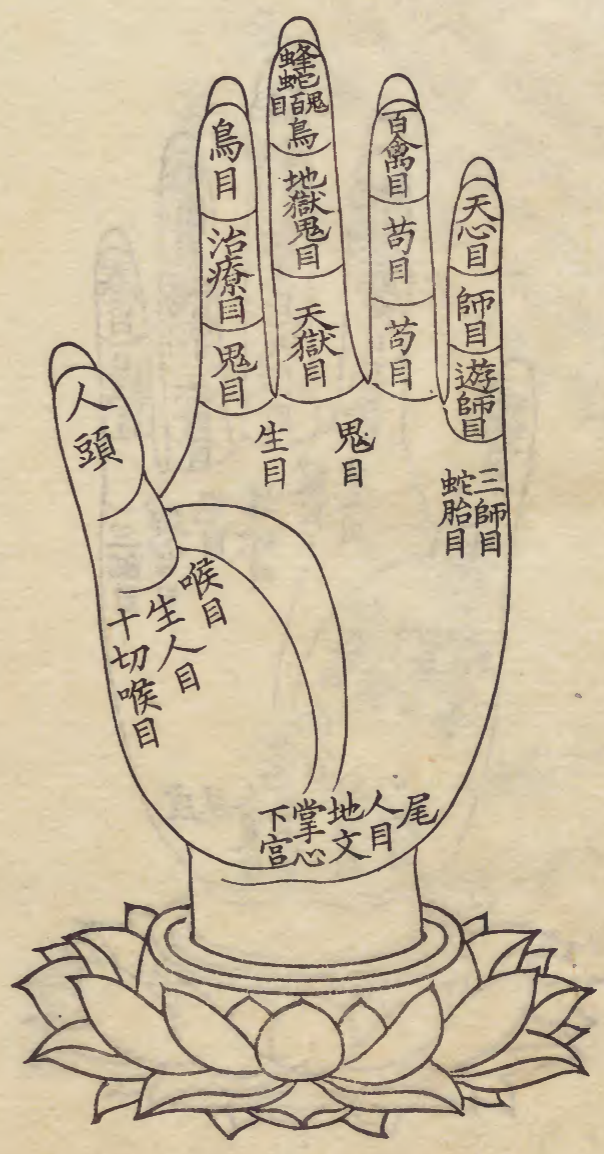 人頭
鳥目
治療目
鬼目
蜂蛇
百鬼目
鳥
地獄鬼目
天獄目
百禽目
苟目
苟目
天心目
師目
遊師目
生目
鬼目
三師目
蛇胎目
喉目
生人目
十切喉目
尾
人目
地文
掌心
下宮